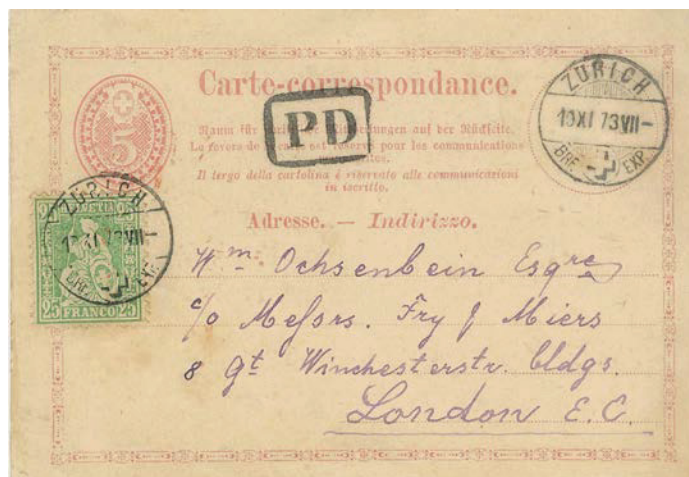 Carte-correspondance.
5
PD
ZÜRICH
19 XI 73 VII-
BRF. EXP.
Raum für auf der Rückseite.
Le revers de la carte est réservé pour les communications
Il tergo della cartolina è riservato alle communicazioni
in iscritto.
Adresse. — Indirizzo.
ZÜRICH
73 VII
BRF. EXP.
HELVETIA
25 25
25 FRANCO 25
Wm. Ochsenbein Esqre
c/o Messrs. Fry & Miers
8 Gt Winchesterstr. bldgs.
London E.C.